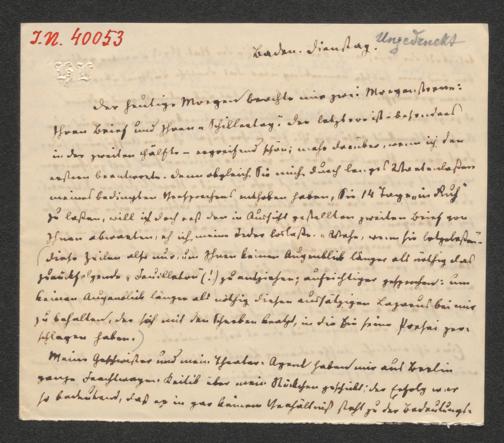 I.N. 40053
Ungedruckt
Baden. Dienstag.
Der heutige Morgen brachte mir zwei Morgensterne:
Ihren Brief und Ihren „Schillertag“. Der letztere ist – besonders
in der zweiten Hälfte – ergreifend schön; mehr darüber, wenn ich den
ersten beantworte. Denn obgleich Sie mich durch langes Wartenlassen
meines bedingten Versprechens enthoben haben, Sie 14 Tage „in Ruh“
zu lassen, will ich doch erst den in Aussicht gestellten zweiten Brief von
Ihnen abwarten, eh ich meine Feder loslasse. Wehe, wenn sie losgelassen
Diese Zeilen also nur, um Ihnen keinen Augenblick länger als nöthig das
zurückfolgende „Feuilleton“ (!) zu entziehen; aufrichtiger gesprochen: um
keinen Augenblick länger als nöthig diesen aussätzigen Lazarus bei mir
zu behalten, der sich mit den Scherben kratzt, in die Sie seine Prosa zer-
schlagen haben.
Meine Geschwister und mein Theater-Agent haben mir aus Berlin
ganze Frachtwagen Kritik über mein Stückchen geschickt; der Erfolg war
so bedeutend, daß er in gar keinem Verhältniß steht zu der Bedeutungs-